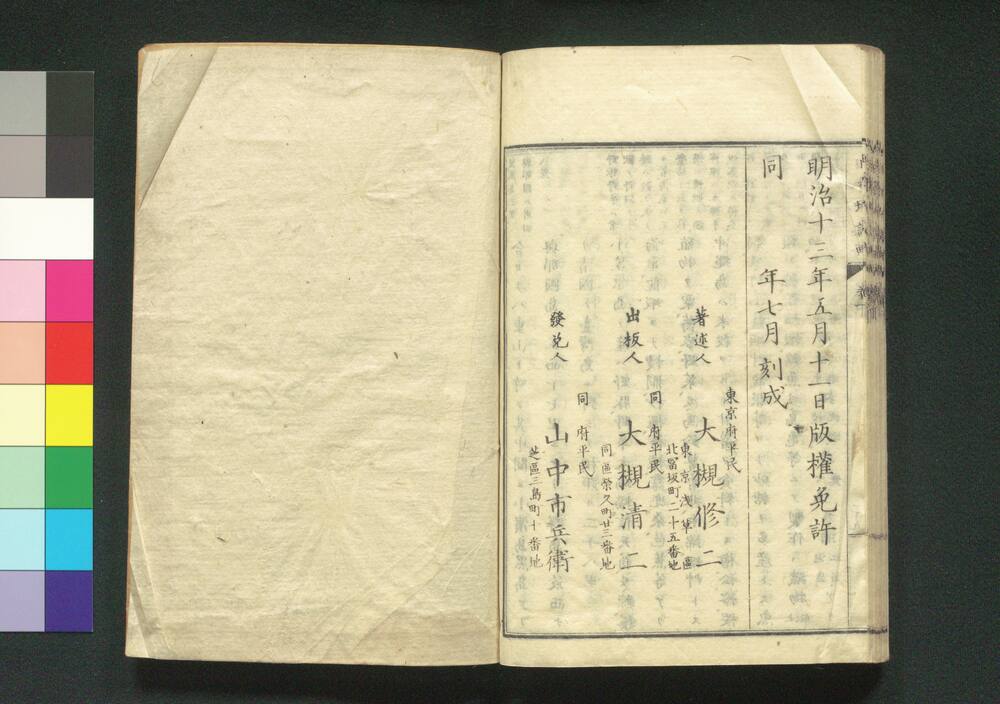 明治十三年五月十一日版權免許
同　年七月刻成
東京府平民
著述人　大槻修二
東京淺草區
北冨坂町二十五番地
同　府平民
出板人　大槻清二
同區榮久町廿三番地
同　府平民
發兌人　山中市兵衛
芝區三島町十番地